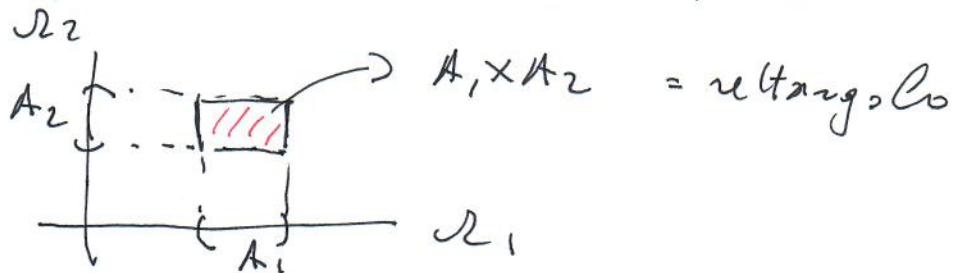 Ω2
A2
A1 × A2 = rettangolo
Ω1
A1